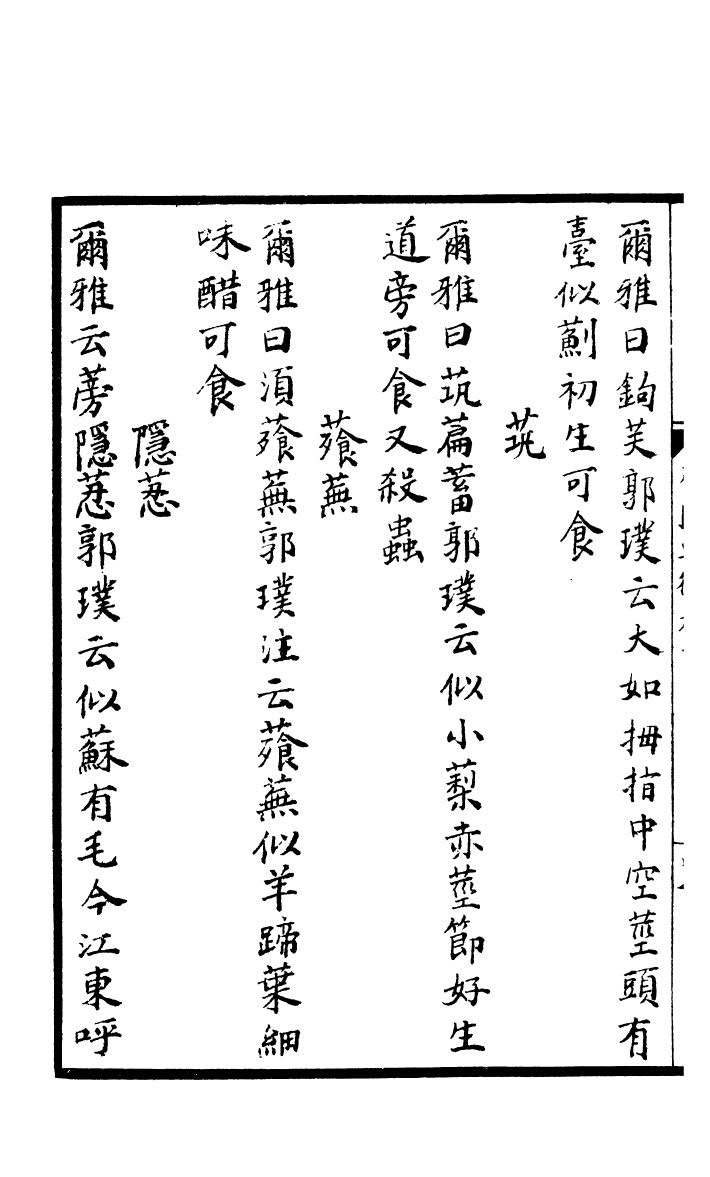 爾雅曰鉤芺郭璞云大如拇指中空莖頭有
臺似薊初生可食
茿
爾雅曰茿萹蓄郭璞云似小藜赤莖節好生
道旁可食又殺蟲
蕵蕪
爾雅曰須蕵蕪郭璞注云蕵蕪似羊蹄葉細
味醋可食
隱荵
爾雅云蒡隱荵郭璞云似蘇有毛今江東呼